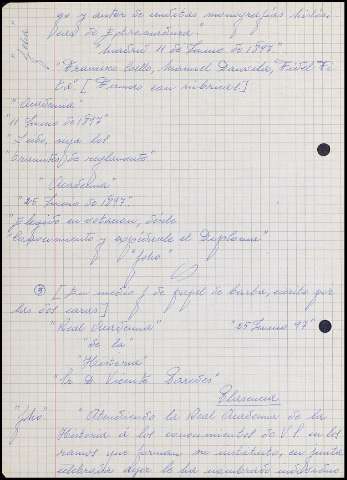 go y autor de eruditas monografías histó-
ricas de Extremadura.
"Madrid 11 de Junio de 1897"
"Francisco Coello, Manuel Danvila, "Fidel Fi-
ta" [Firman con rúbricas]
"Academia"
"11 Junio de 1897"
"los
trámites de reglamento"
"Academia"
"25 Junio de 1897"
"Elegido en votación, désele
"conocimiento y expídasele el Diploma"
"folio"
[En medio f. de papel de barba, escrito por
las dos caras]
"Real Academia" "25 Junio 97"
"de la"
"Historia"
"Sr. D. Vicente Paredes"
Plasencia
"folio" "Atendiendo la Real Academia de la
Historia á los conocimientos de V.S. en los
ramos que forman su instituto, en junta
celebrada ayer le ha nombrado individuo